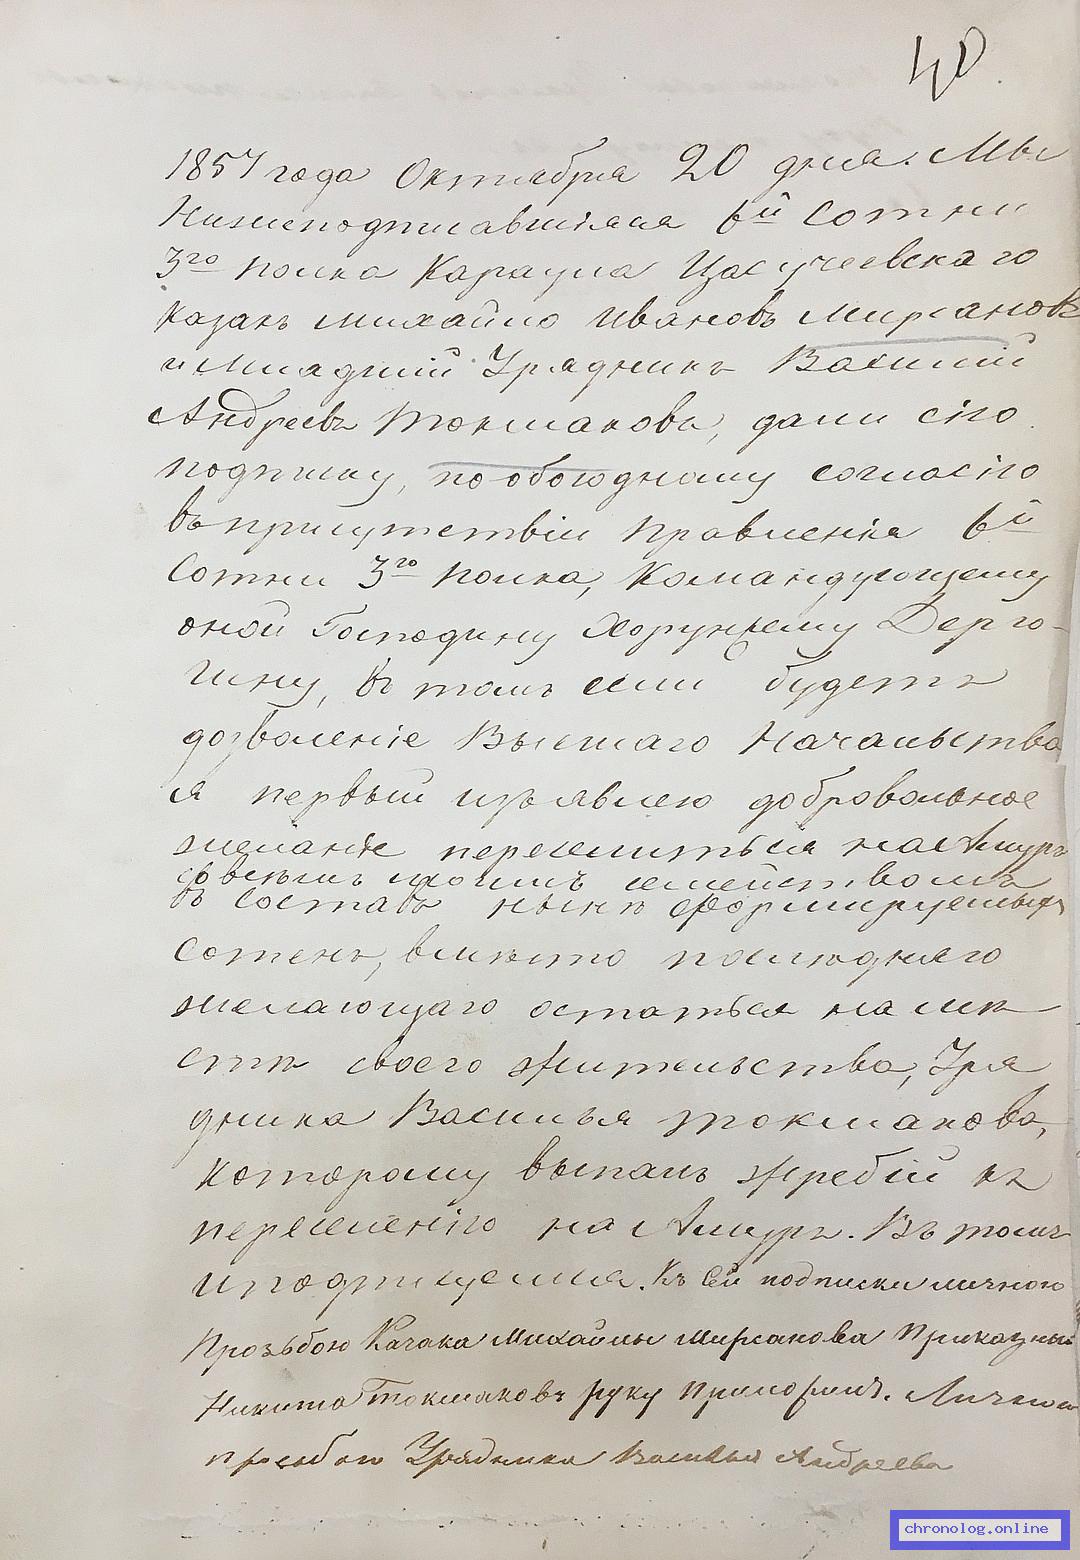 40
1857 года Октября 20 дня. Мы
Нижеподписавшіяся 6й Сотни
3го полка Караула Цасучеевскаго
казакъ Михайло Ивановъ Мирсановъ
и Младшій Урядникъ Василій
Андреевъ Токмаковъ, дали сію
подписку, по обоюдному согласію
въ присутствіи Правленія 6й
Сотни 3го полка, Командующему
оной Господину Хорунжему Дерю-
гину, въ томъ если будетъ
дозволеніе Высшаго Начальства
я первый изъявлею добровольное
желаніе переселиться на Амуръ
со всемъ моимъ семействомъ
въ составъ нынѣ формируемыхъ
сотенъ, вмѣсто послѣдняго
желающаго остаться на мѣ
стѣ своего жительства, Уря
дника Василья Токмакова,
которому выпалъ жребій къ
переселенію на Амуръ. Въ томъ
и подпищемся. Къ сей подписки личною
Прозьбою Казака Михайлы Мирсанова Приказный
Никита Токмаковъ руку Приложилъ. Личною
прозьбою Урядника Василья Андреева
chronolog.online